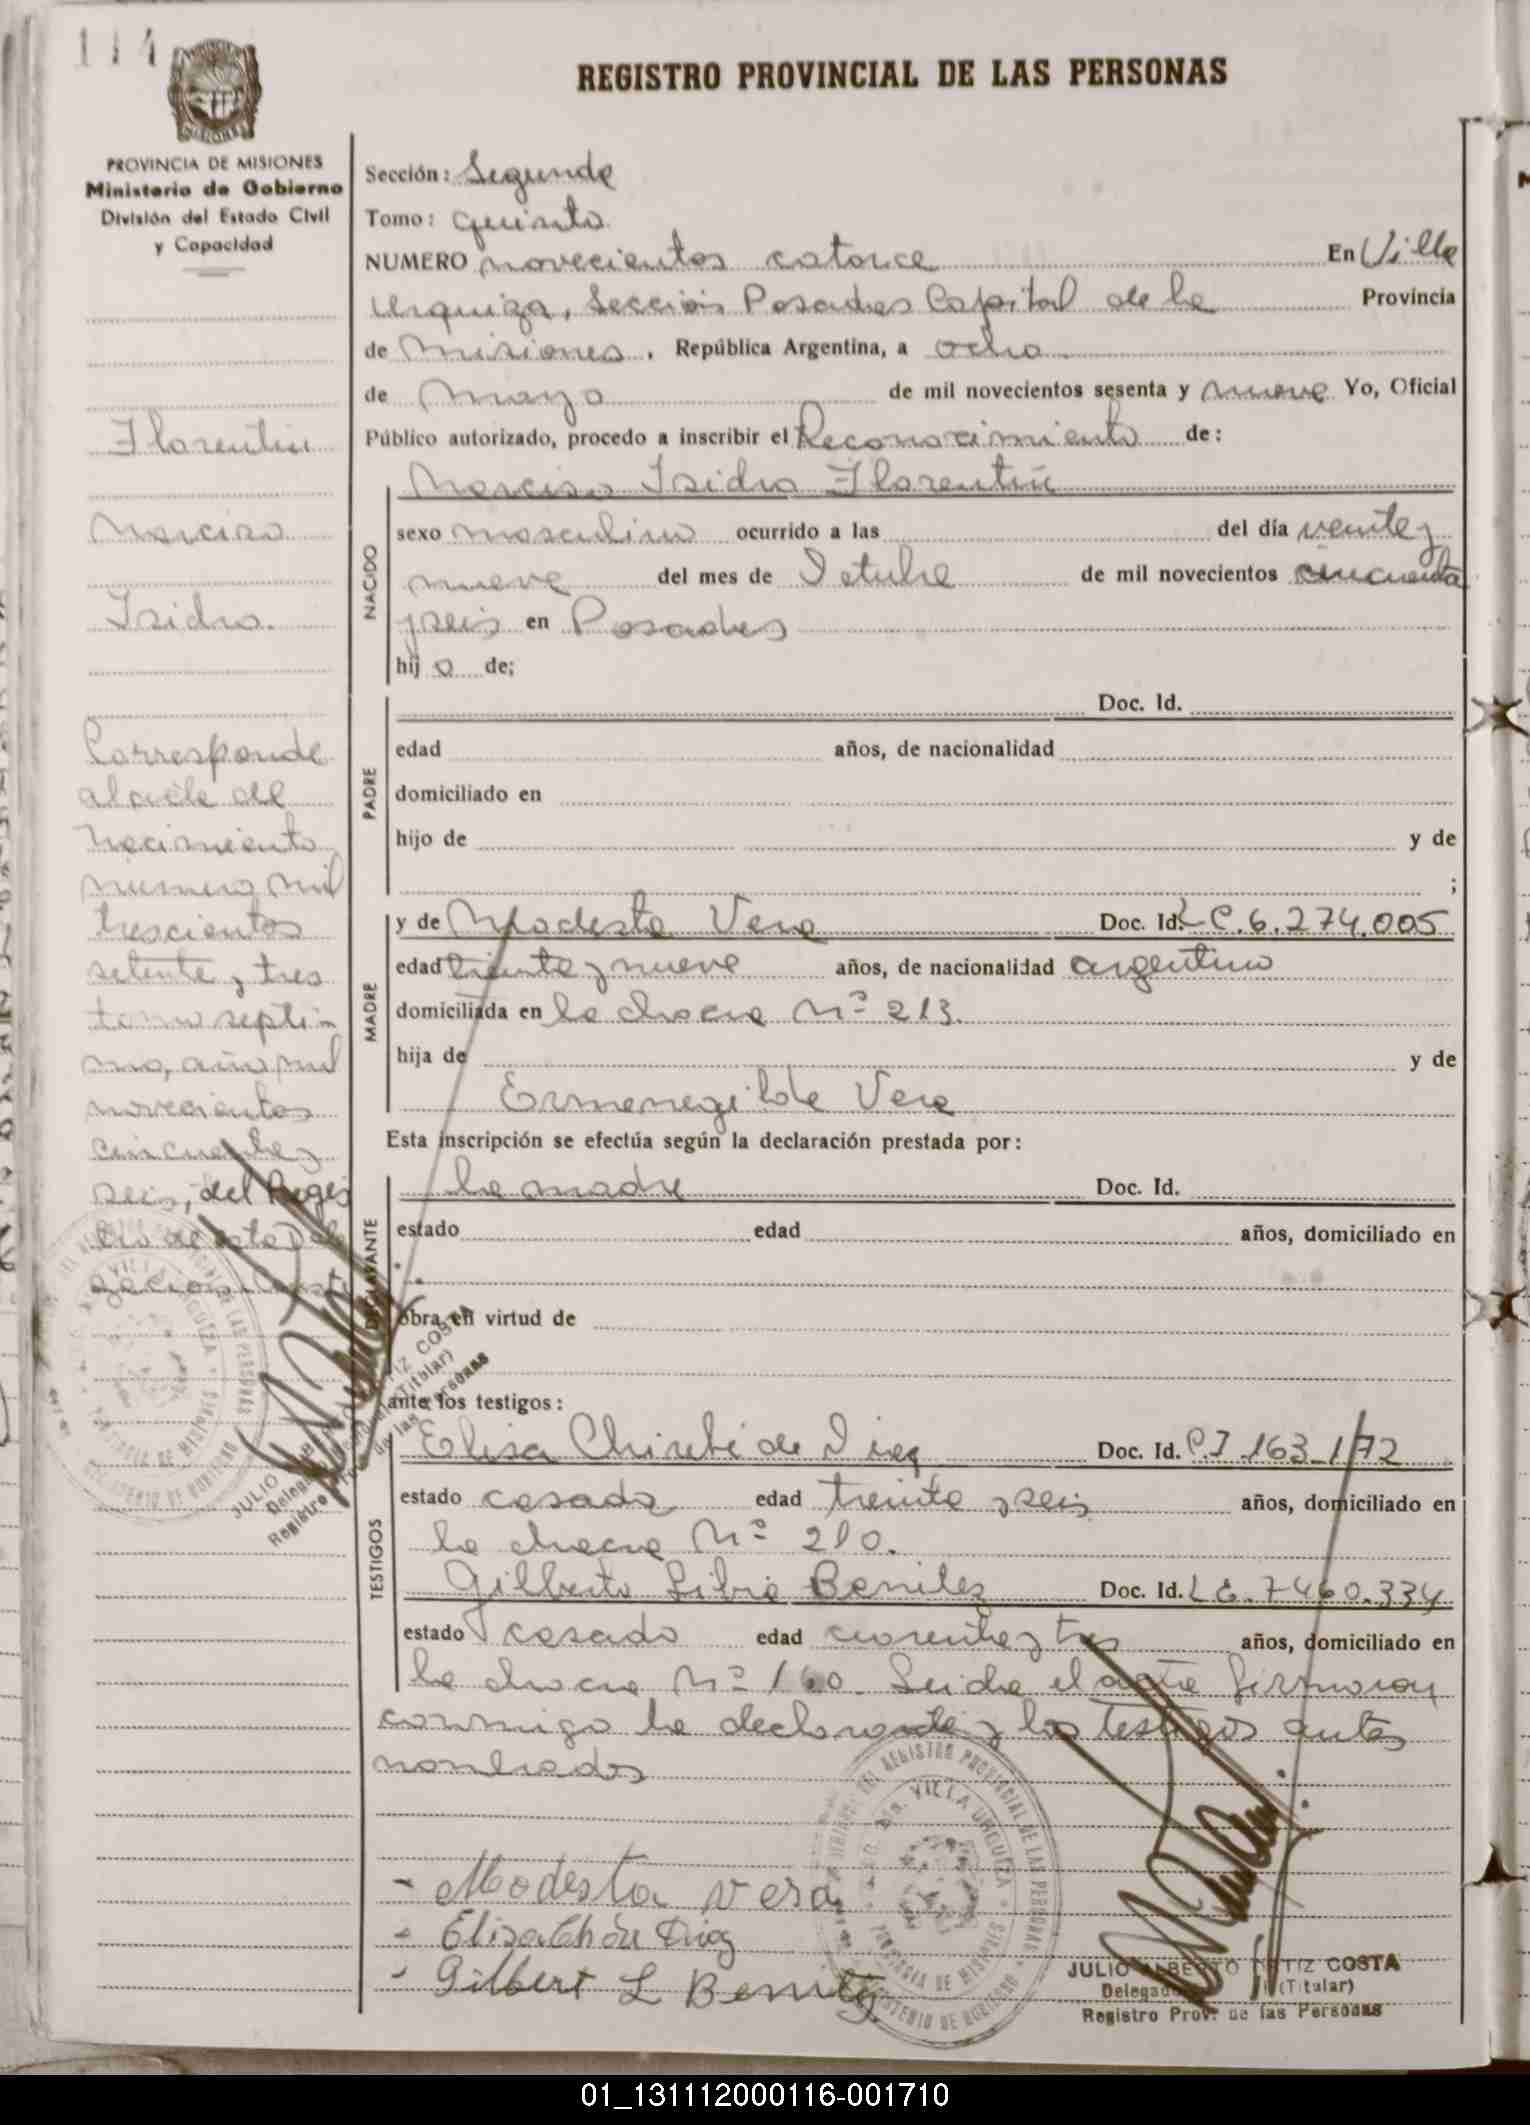 114
REGISTRO PROVINCIAL DE LAS PERSONAS
PROVINCIA DE MISIONES
Ministerio de Gobierno
División del Estado Civil
y Capacidad
Florentin
Narciso
Isidro.
Corresponde
al acta de
Nacimiento
numero mil
trescientos
setenta y tres
tomo septi-
mo, año mil
novecientos
cincuenta y
seis, del Regis
tro de esta Dele
gacion
Sección: Segunda
Tomo: quinto
NUMERO novecientos catorce En Villa
Urquiza, Sección Posadas Capital de la Provincia
de Misiones, República Argentina, a ocho
de Mayo de mil novecientos sesenta y nueve Yo, Oficial
Público autorizado, procedo a inscribir el Reconocimiento de:
NACIDO
Narciso Isidro Florentín
sexo masculino ocurrido a las del día veinte y
nueve del mes de Octubre de mil novecientos cincuenta
y seis en Posadas
hijo de;
PADRE
Doc. Id.
edad años, de nacionalidad
domiciliado en
hijo de y de
;
MADRE
y de Modesta Vera Doc. Id. L.C. 6.274.005
edad treinta y nueve años, de nacionalidad argentino
domiciliada en la chacra Nº 213.
hija de y de
Ermenegilda Vera
Esta inscripción se efectúa según la declaración prestada por:
DECLARANTE
la madre Doc. Id.
estado edad años, domiciliado en
obra en virtud de
ante los testigos:
TESTIGOS
Elisa de Doc. Id. C.I 163.172
estado casada edad treinta y seis años, domiciliado en
la chacra Nº 210.
Gilberto Benitez Doc. Id. L E. 7460.334
estado casado edad cuarenta y tres años, domiciliado en
la chacra Nº 160. Leida el acta firmaron
conmigo la declarante y los testigos antes
nombrados
- Modesta Vera
- Elisa
- Gilbert L Benitez
JULIO ALBERTO ORTIZ COSTA
(Titular)
Registro Prov. de las Personas
01_131112000116-001710